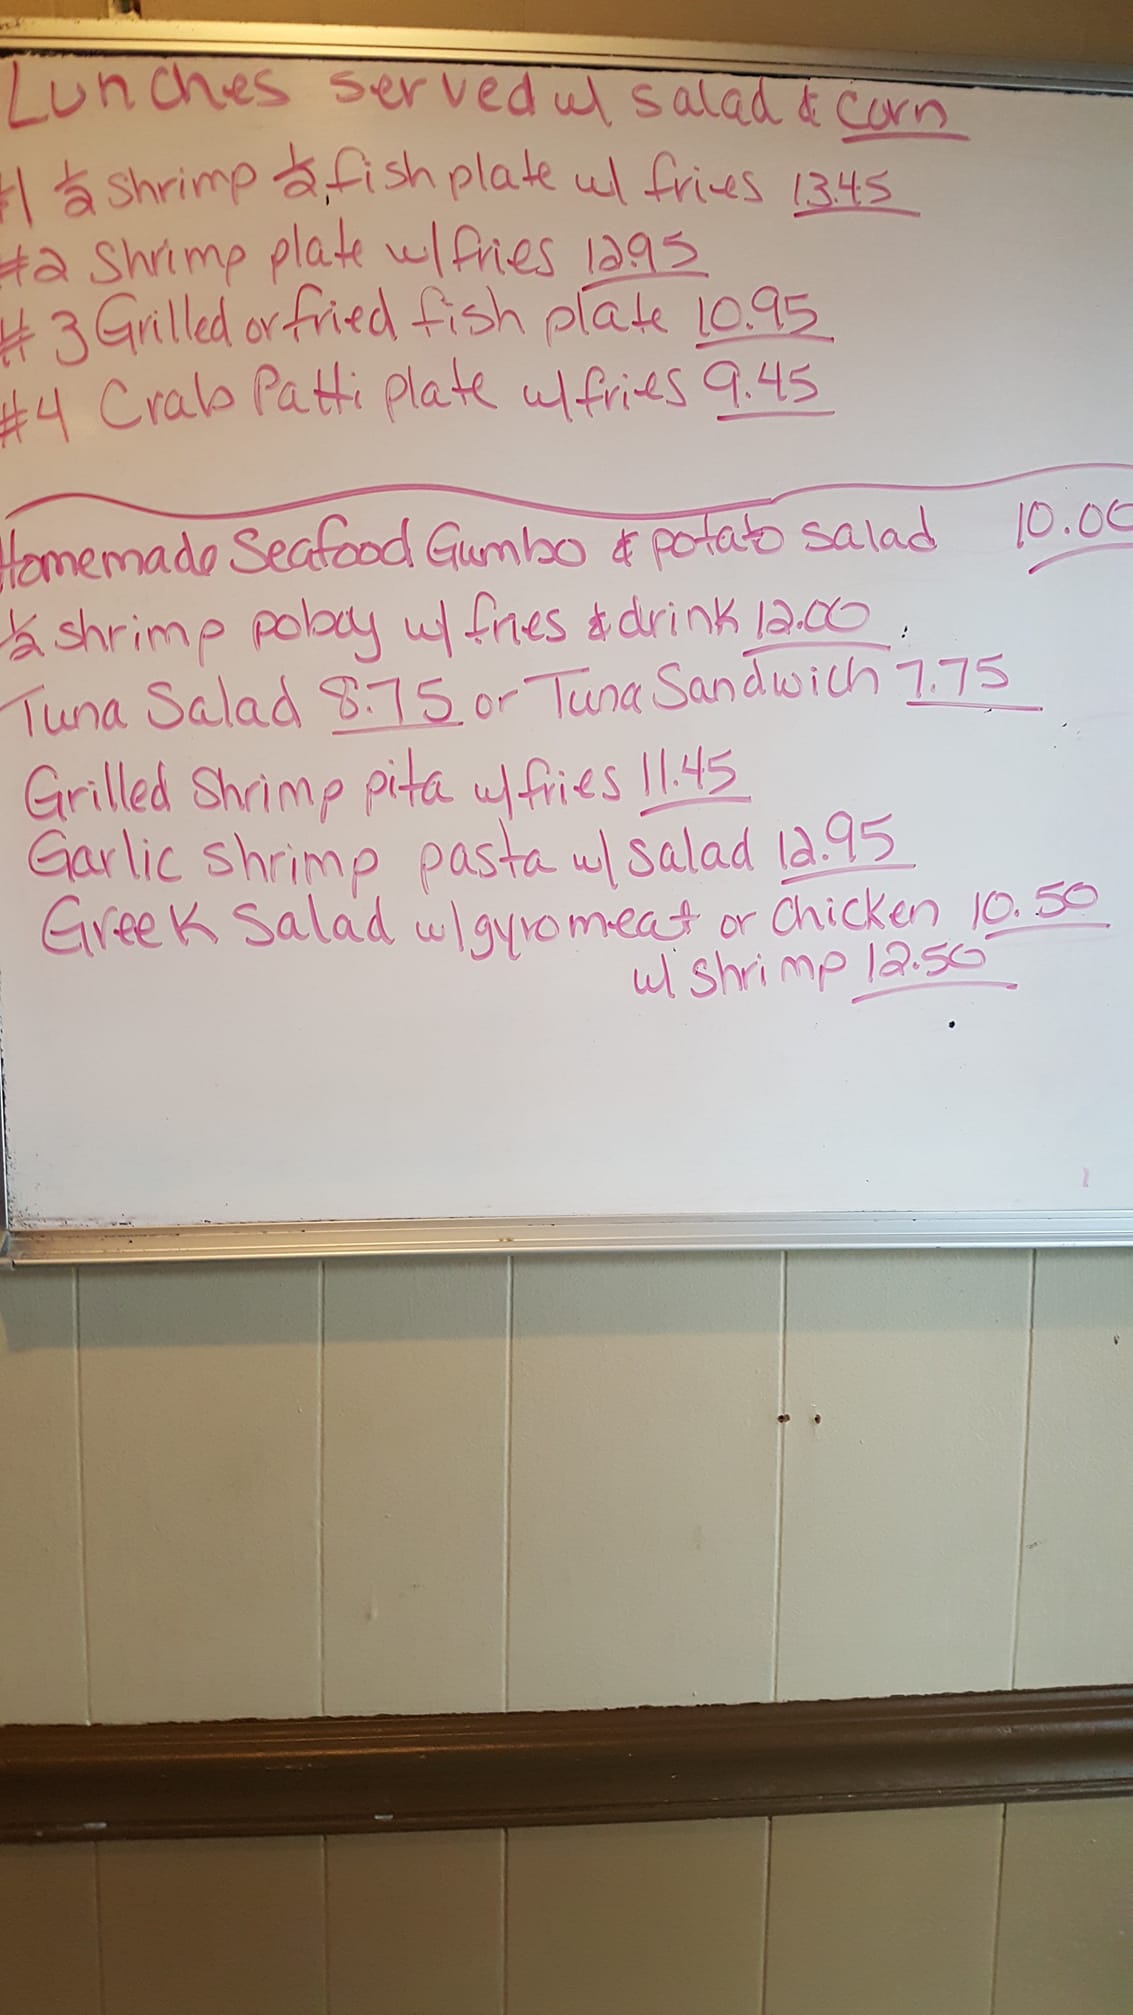 Lunches served w/ salad & corn
#1 ½ shrimp ½ fish plate w/ fries 13.45
#2 Shrimp plate w/ fries 12.95
#3 Grilled or fried fish plate 10.95
#4 Crab Patti plate w/ fries 9.45
Homemade Seafood Gumbo & potato salad 10.00
½ shrimp poboy w/ fries & drink 12.00
Tuna Salad 8.75 or Tuna Sandwich 7.75
Grilled Shrimp pita w/ fries 11.45
Garlic shrimp pasta w/ salad 12.95
Greek Salad w/ gyro meat or chicken 10.50
w/ shrimp 12.50